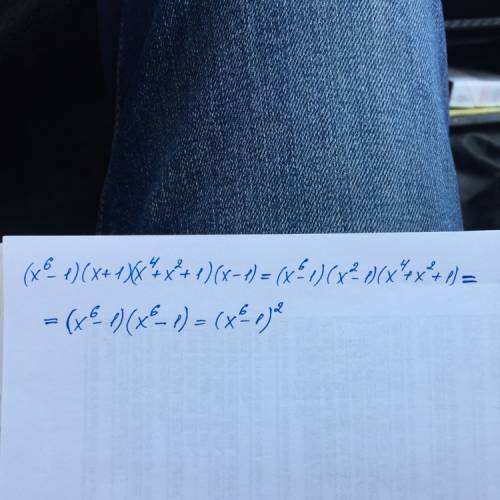 (x⁶-1)(x+1)(x⁴+x²+1)(x-1)=(x⁶-1)(x²-1)(x⁴+x²+1)=
=(x⁶-1)(x⁶-1)=(x⁶-1)²